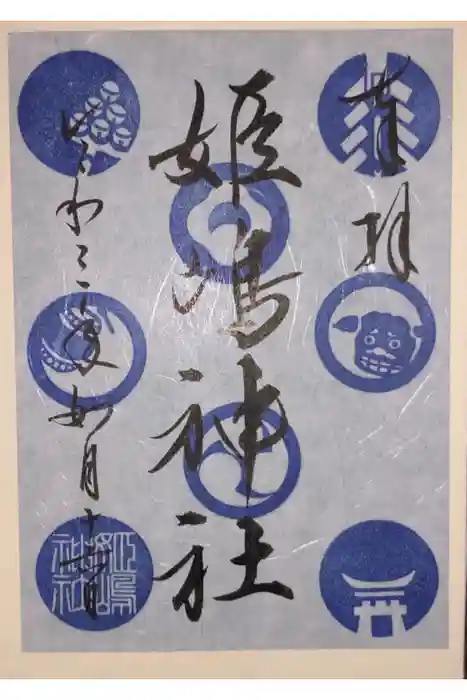 奉拝
姫嶋神社
令和三年如月十一日
姫嶋神社